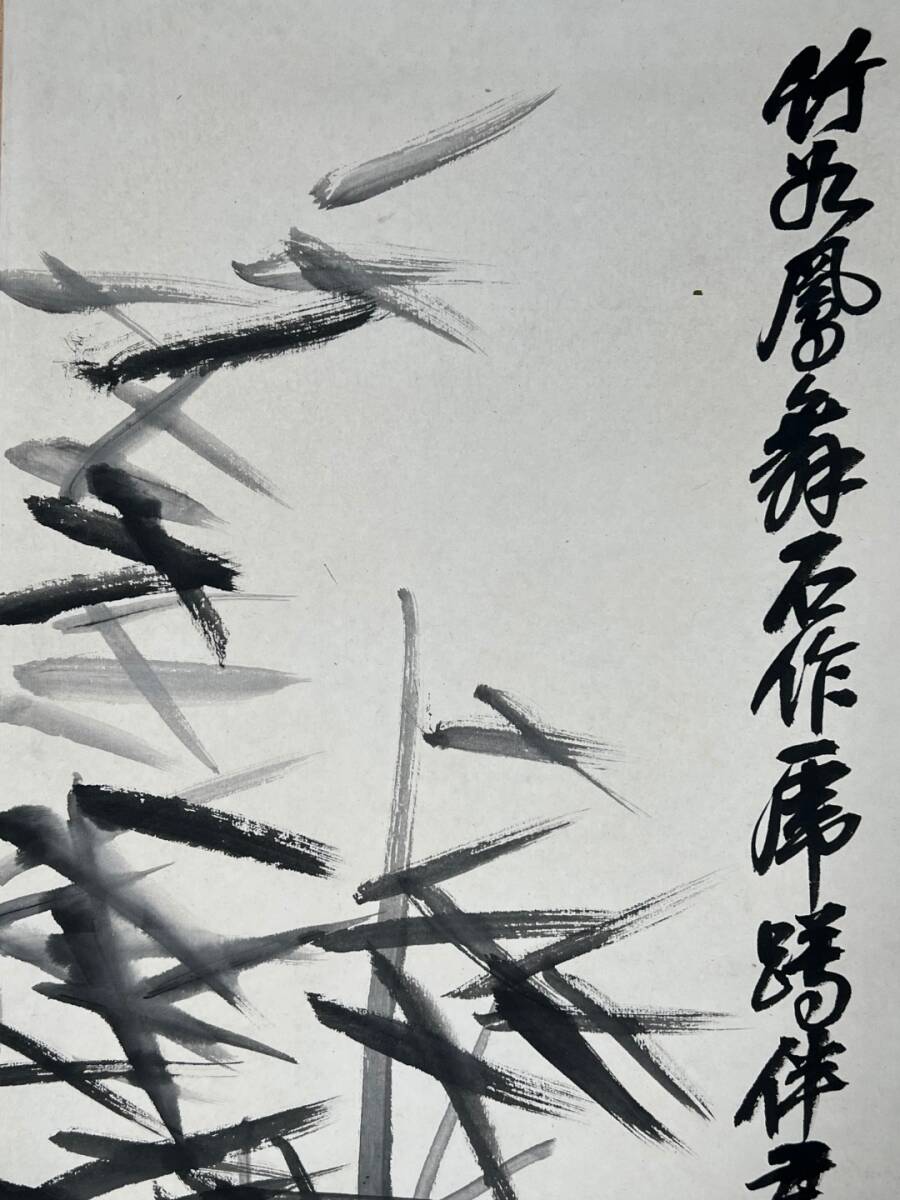 竹如鳳舞石作虎蹲伴